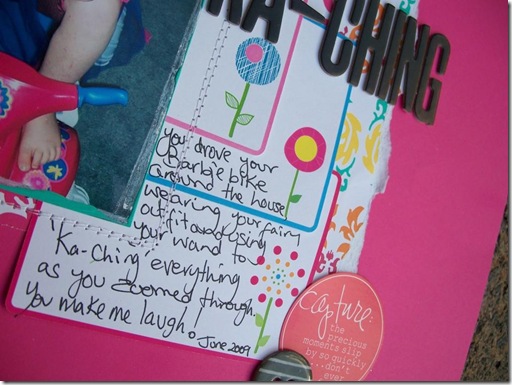 KA-CHING
you drove your
Barbie bike
around the house
wearing your fairy
outfit and using
your wand to
"Ka-Ching" everything
as you zoomed through.
You make me laugh!
June 2009
capture:
the
precious
moments slip
by so quickly
...don't
ever